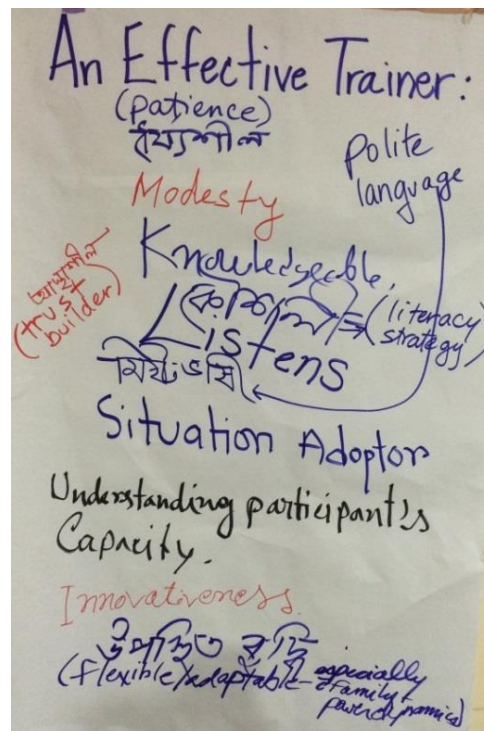 An Effective Trainer:
(patience)
ধৈর্য্যশীল
polite
language
Modesty
Knowledgeable,
(trust
builder)
কৌশলি = (literacy
strategy)
Listens
মিষ্টভাষি
Situation Adoptor
Understanding participant's
Capacity.
Innovativeness
(flexible/adaptable - especially
family +
power dynamics)